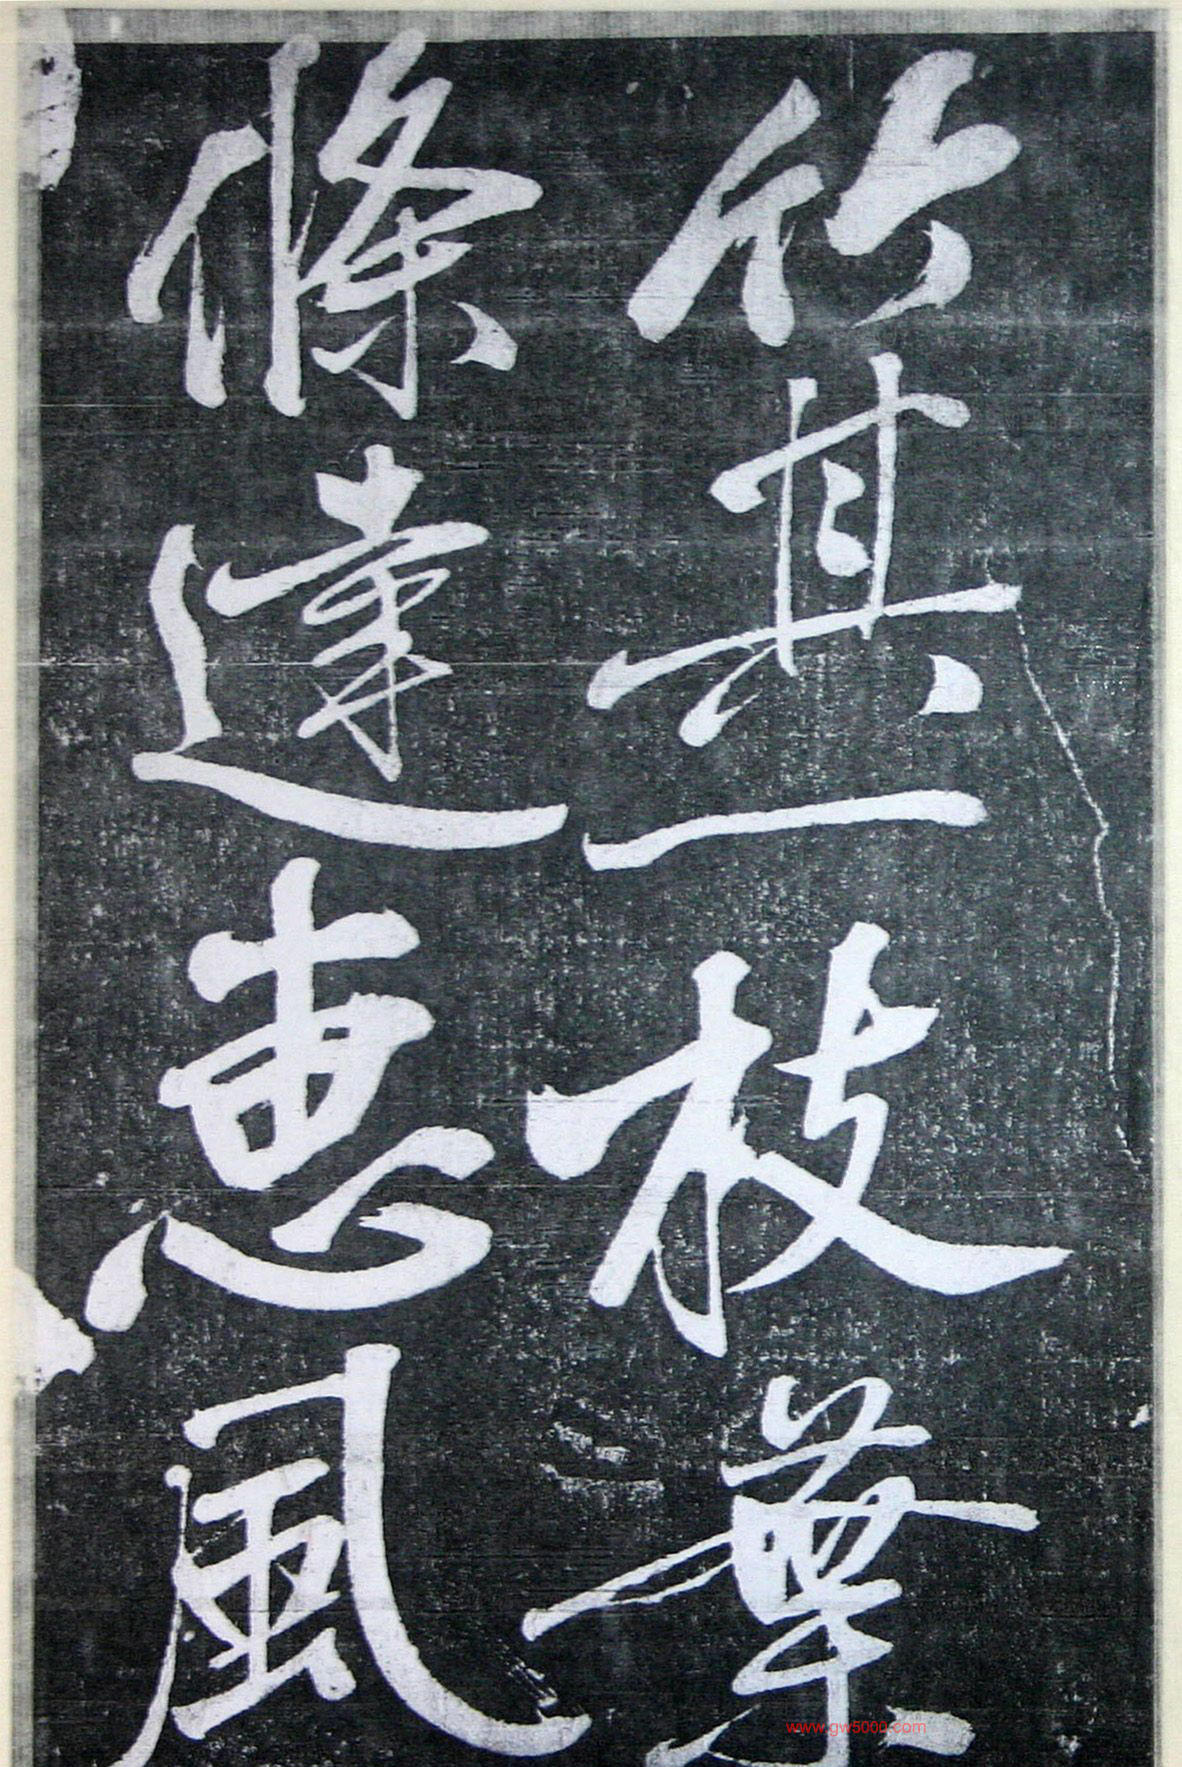 竹其一枝葉
條達惠風
www.gw5000.com